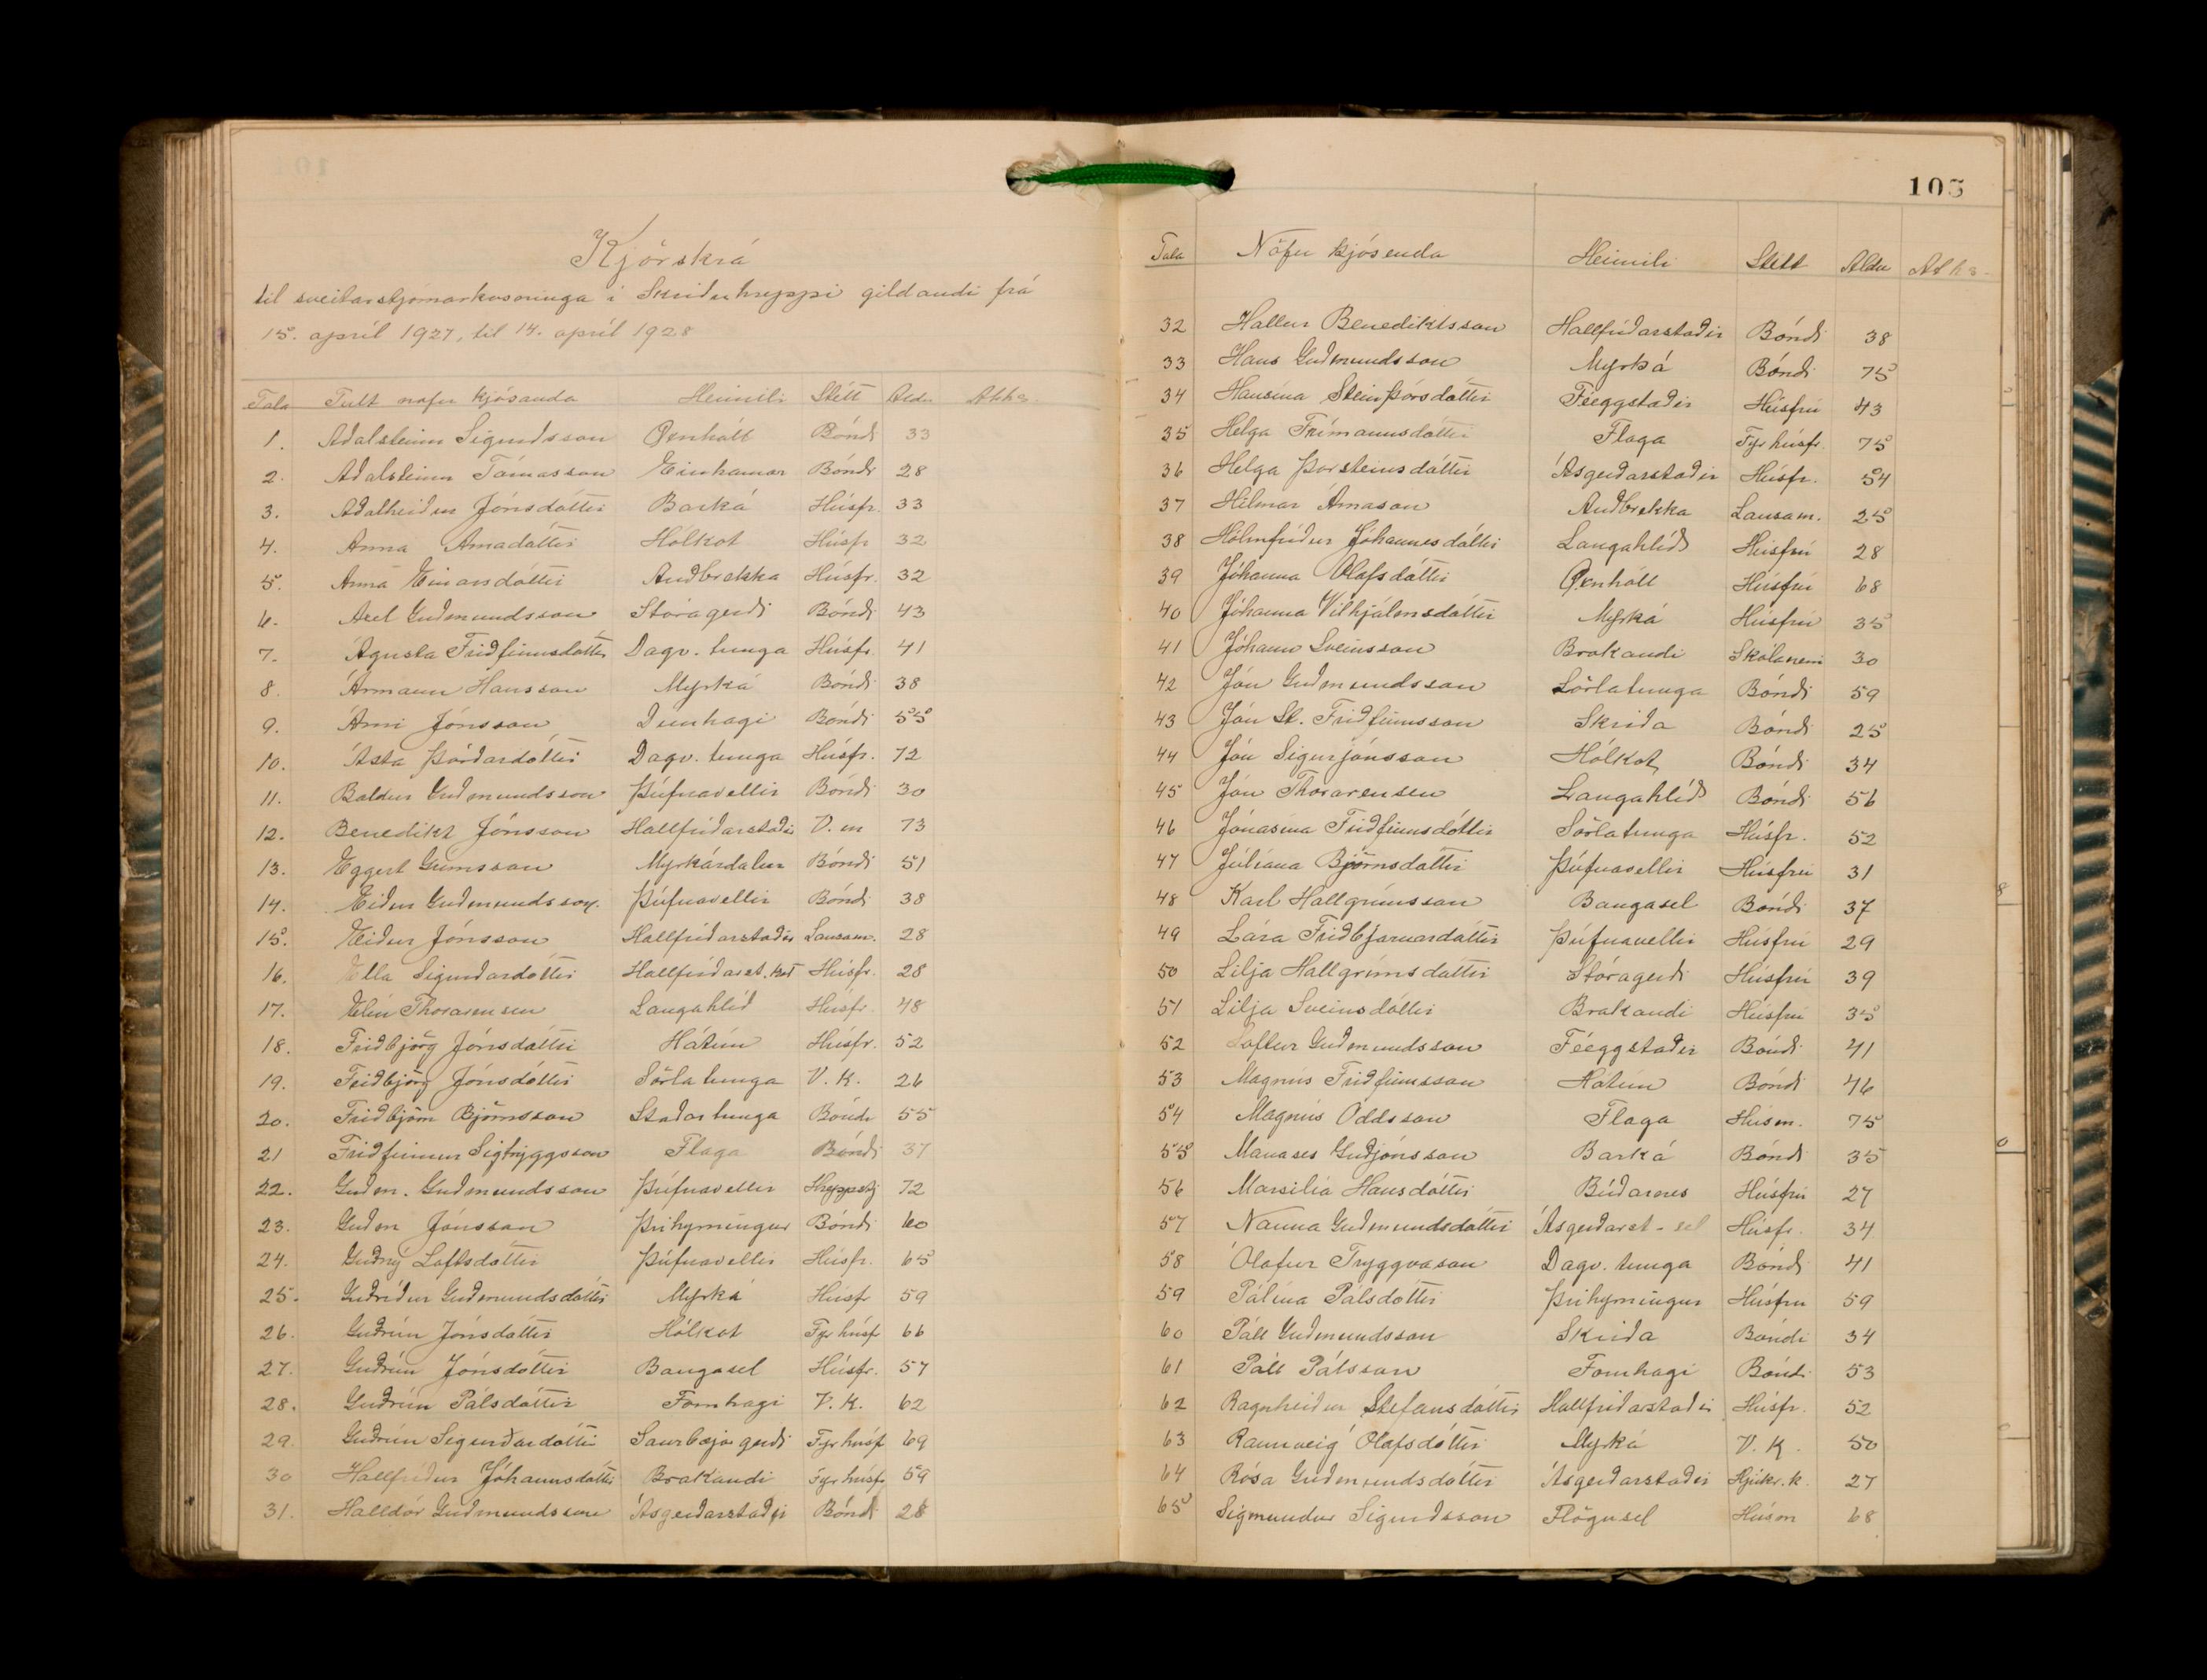 Kjörskrá
til sveitarstjórnarkosninga í Skriðuhreppi gildandi frá
15. apríl 1927, til 14. apríl 1928
Tala Fult nafn kjósanda Heimili Stétt Aldr Athr.
1. Aðalsteinn Sigurðsson Öxnhóll Bóndi 33
2. Aðalsteinn Tómasson Einhamar Bóndi 28
3. Aðalheiður Jónsdóttir Barká Húsfr. 33
4. Anna Árnadóttir Hólkot Húsfr 32
5. Anna Einarsdóttir Auðbrekka Húsfr. 32
6. Axel Guðmundsson Stóragerði Bóndi 43
7. Ágústa Friðfinnsdóttir Dagv. tunga Húsfr. 41
8. Ármann Hansson Myrká Bóndi 38
9. Árni Jónsson Dunhagi Bóndi 55
10. Ásta Þórðardóttir Dagv. tunga Húsfr. 72
11. Baldur Guðmundsson Þúfnavellir Bóndi 30
12. Benedikt Jónsson Hallfríðarstaðir V. m 73
13. Eggert Grímsson Myrkárdalur Bóndi 51
14. Eiður Guðmundsson. Þúfnavellir Bóndi 38
15. Eiður Jónsson Hallfríðarstaðir Lausam. 28
16. Ella Sigurðardóttir Hallfríðarst. kot Húsfr. 28
17. Elín Thorarensen Langahlíð Húsfr. 48
18. Friðbjörg Jónsdóttir Hátún Húsfr. 52
19. Friðbjörg Jónsdóttir Sörlatunga V. K. 26
20. Friðbjörn Björnsson Staðartunga Bóndi 55
21 Friðfinnur Sigtryggsson Flaga Bóndi 37
22. Guðm. Guðmundsson Þúfnavellir Hreppstj 72
23. Guðm Jónsson Þríhyrningur Bóndi 60
24. Guðný Loftsdóttir Þúfnavellir Húsfr. 65
25. Guðríður Guðmundsdóttir Myrká Húsfr 59
26. Guðrún Jónsdóttir Hólkot Fyr húsf 66
27. Guðrún Jónsdóttir Baugasel Húsfr. 57
28. Guðrún Pálsdóttir Fornhagi V. K. 62
29. Guðrún Sigurðardóttir Saurbæjargerði Fyr húsf 69
30 Hallfríður Jóhannsdóttir Brakandi Fyr húsfr 59
31. Halldór Guðmundsson Ásgerðarstaðir Bóndi 28
105
Tala Nöfn kjósenda Heimili Stétt Aldur Athr.
32 Hallur Benediktsson Hallfríðarstaðir Bóndi 38
33 Hans Guðmundsson Myrká Bóndi 75
34 Hansína Steinþórsdóttir Féeggstaðir Húsfrú 43
35 Helga Frímannsdóttir Flaga Fyr húsfr. 75
36 Helga Þorsteinsdóttir Ásgerðarstaðir Húsfr. 54
37 Hilmar Árnason Auðbrekka Lausam. 25
38 Hólmfríður Jóhannesdóttir Langahlíð Húsfrú 28
39 Jóhanna Ólafsdóttir Öxnhóll Húsfrú 68
40 Jóhanna Vilhjálmsdóttir Myrká Húsfrú 35
41 Jóhann Sveinsson Brakandi Skólanemi 30
42 Jón Guðmundsson Sörlatunga Bóndi 59
43 Jón St. Friðfinnsson Skriða Bóndi 25
44 Jón Sigurjónsson Hólkot Bóndi 34
45 Jón Thorarensen Langahlíð Bóndi 56
46 Jónasína Friðfinnsdóttir Sörlatunga Húsfr. 52
47 Júlíana Björnsdóttir Þúfnavellir Húsfrú 31
48 Karl Hallgrímsson Baugasel Bóndi 37
49 Lára Friðbjarnardóttir Þúfnavellir Húsfrú 29
50 Lilja Hallgrímsdóttir Stóragerði Húsfrú 39
51 Lilja Sveinsdóttir Brakandi Húsfrú 35
52 Loftur Guðmundsson Féeggstaðir Bóndi 41
53 Magnús Friðfinnsson Hátún Bóndi 46
54 Magnús Oddsson Flaga Húsm. 75
55 Manases Guðjónsson Barká Bóndi 35
56 Marsilía Hansdóttir Búðarnes Húsfrú 27
57 Nanna Guðmundsdóttir Ásgerðarst-sel Húsfr. 34
58 Ólafur Tryggvason Dagv. tunga Bóndi 41
59 Pálína Pálsdóttir Þríhyrningur Húsfrú 59
60 Páll Guðmundsson Skriða Bóndi 34
61 Páll Pálsson Fornhagi Bóndi 53
62 Ragnheiður Stefánsdóttir Hallfríðarstaðir Húsfr. 52
63 Rannveig Ólafsdóttir Myrká V. K. 50
64 Rósa Guðmundsdóttir Ásgerðarstaðir Hjúkr. k. 27
65 Sigmundur Sigurðsson Flögusel Húsm 68